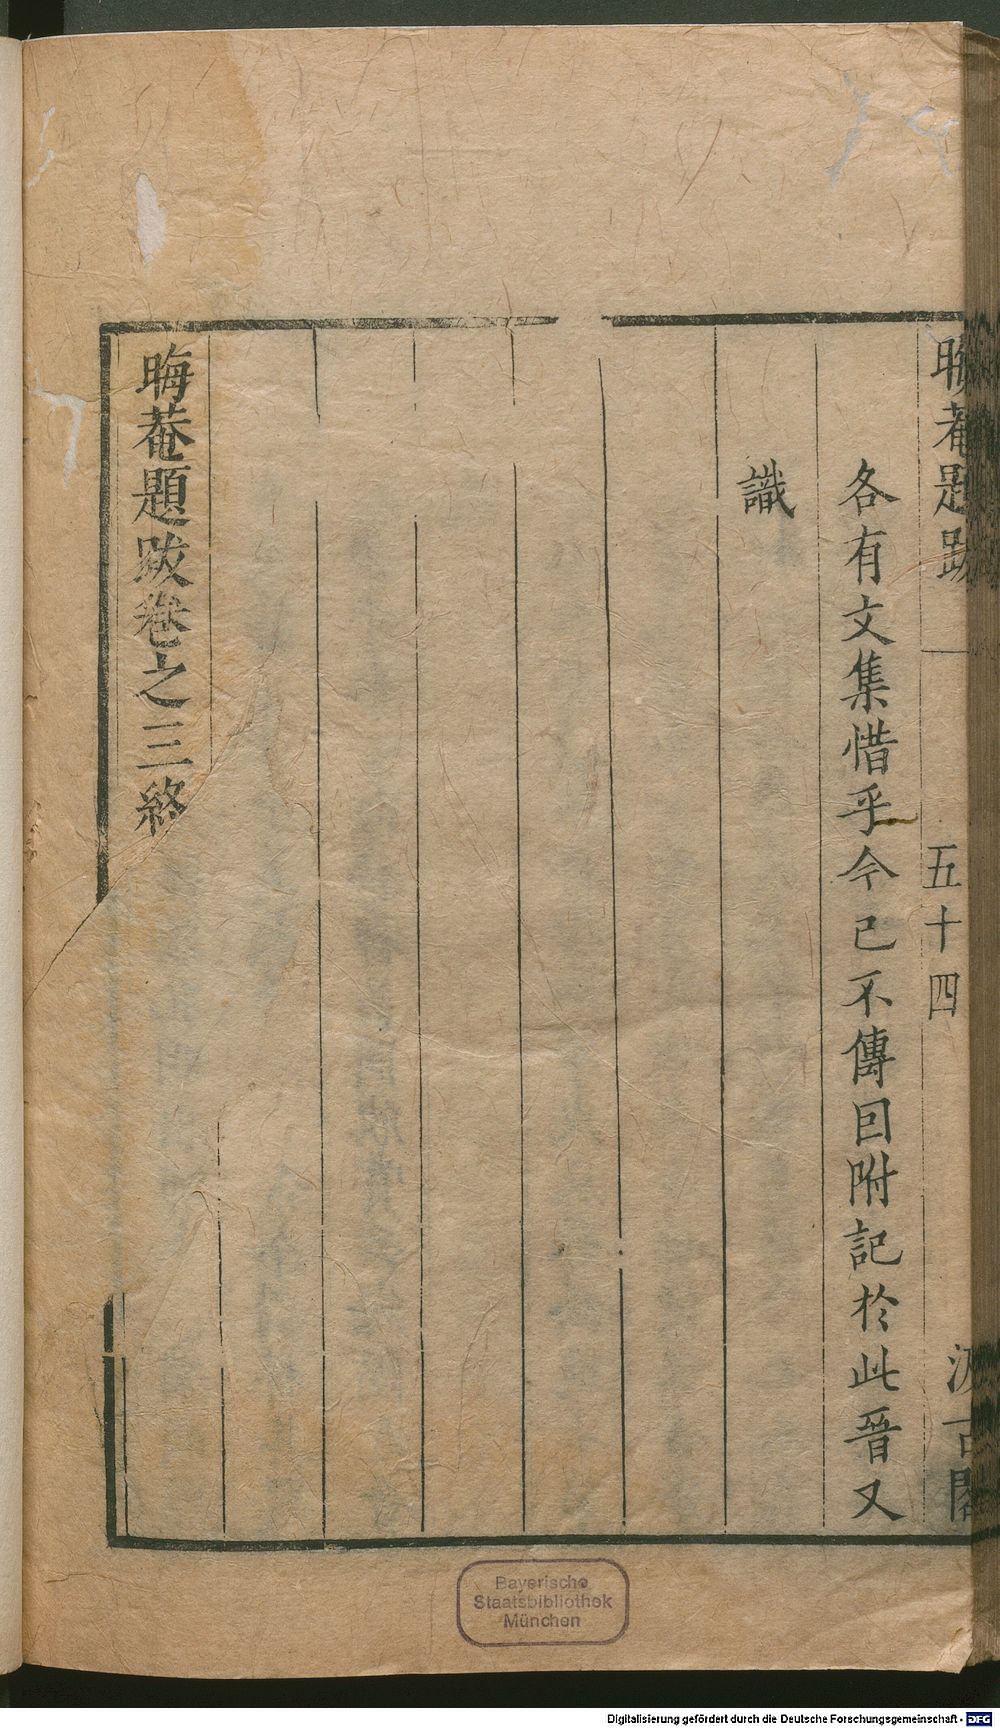 晦菴題跋
五十四
汲古閣
各有文集惜乎今已不傳因附記於此晉又
識
晦菴題跋卷之三終
Bayerische
Staatsbibliothek
München
Digitalisierung gefördert durch die Deutsche Forschungsgemeinschaft - DFG